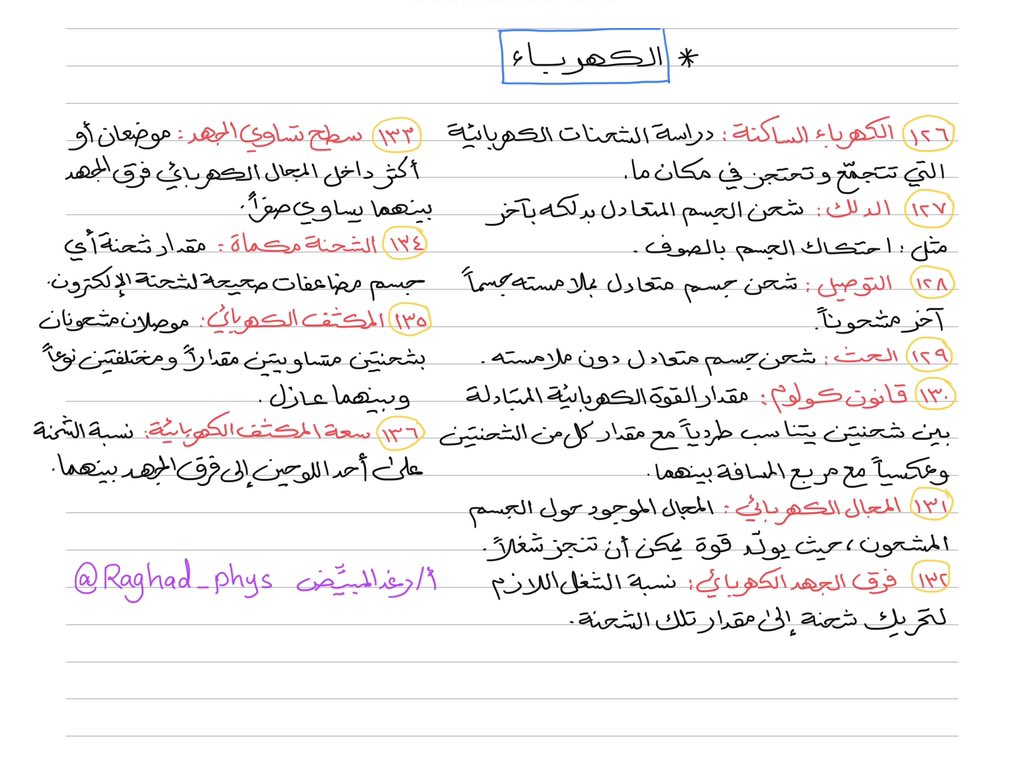 * الكهرباء
١٢٦ الكهرباء الساكنة: دراسة الشحنات الكهربائية
التي تتجمّع و تحتجز في مكان ما.
١٢٧ الدلك: شحن الجسم المتعادل بدلكه بآخر
مثل: احتكاك الجسم بالصوف.
١٢٨ التوصيل: شحن جسم متعادل بملامسته جسماً
آخر مشحوناً.
١٢٩ الحث: شحن جسم متعادل دون ملامسته.
١٣٠ قانون كولوم: مقدار القوة الكهربائية المتبادلة
بين شحنتين يتناسب طردياً مع مقدار كل من الشحنتين
وعكسياً مع مربع المسافة بينهما.
١٣١ المجال الكهربائي: المجال الموجود حول الجسم
المشحون، حيث يولّد قوة يمكن أن تنجز شغلاً.
١٣٢ فرق الجهد الكهربائي: نسبة الشغل اللازم
لتحريك شحنة إلى مقدار تلك الشحنة.
١٣٣ سطح تساوي الجهد: موضعان أو
أكثر داخل المجال الكهربائي فرق الجهد
بينهما يساوي صفراً.
١٣٤ الشحنة مكماة: مقدار شحنة أي
جسم مضاعفات صحيحة لشحنة الإلكترون.
١٣٥ المكثف الكهربائي: موصلان مشحونان
بشحنتين متساويتين مقداراً ومختلفتين نوعاً
وبينهما عازل.
١٣٦ سعة المكثف الكهربائية: نسبة الشحنة
على أحد اللوحين إلى فرق الجهد بينهما.
أ/رغد المبيّض @Raghad_phys